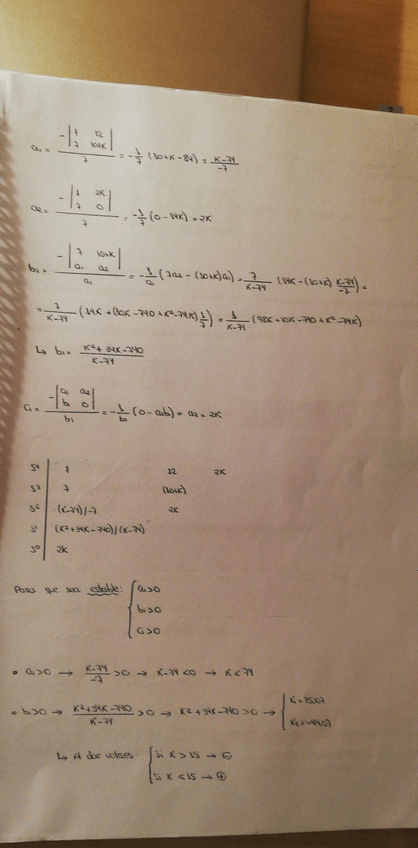 a₁ = -|1 12; 7 10+K| / 7 = -1/7 (10+K-84) = (K-74)/-7
a₂ = -|1 2K; 7 0| / 7 = -1/7 (0-14K) = 2K
b₁ = -|7 10+K; a₁ a₂| / a₁ = -1/a₁ (7a₂ - (10+K)a₁) = 7/(K-74) (14K - (10+K) (K-74)/-7) =
= 7/(K-74) (14K + (10K - 740 + K² - 74K) 1/7) = 1/(K-74) (98K + 10K - 740 + K² - 74K)
↳ b₁ = (K² + 34K - 740)/(K-74)
c₁ = -|a₁ a₂; b₁ 0| / b₁ = -1/b₁ (0 - a₂b₁) = a₂ = 2K
S⁴ | 1 12 2K
S³ | 7 (10+K)
S² | (K-74)/-7 2K
S¹ | (K²+34K-740)/(K-74)
S⁰ | 2K
Para que sea estable: { a₁>0
b₁>0
c₁>0
• a₁>0 → (K-74)/-7 >0 → K-74<0 → K<74
• b₁>0 → (K²+34K-740)/(K-74) >0 → K²+34K-740>0 → { K=15,07
K=-49,07
↳ A dar valores: { Si K>15 → ⊖
Si K<15 → ⊕